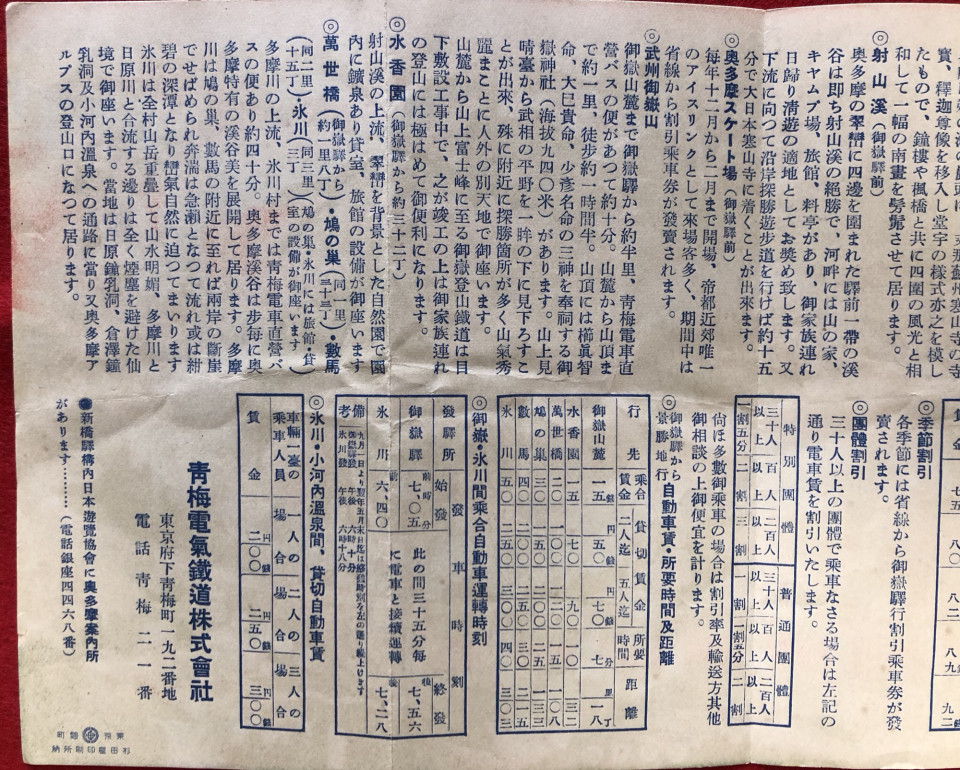 寶、釋迦尊像を移入し堂宇の樣式亦之を模し
たもので、鐘樓や楓橋と共に四圍の風光と相
和して一幅の南畫を髣髴させて居ります。
◎射山溪（御嶽驛前）
奧多摩の翠巒に四邊を圍まれた驛前一帶の溪
谷は即ち射山溪の絕勝で、河畔には山の家、
キャムプ場、旅館、料亭があり、御家族連れ
日歸り淸遊の適地としてお奬め致します。又
下流に向つて沿岸探勝遊步道を行けば約十五
分で大日本寒山寺に着くことが出來ます。
◎奧多摩スケート場（御嶽驛前）
每年十二月から二月まで開場、帝都近郊唯一
のアイスリンクとして來場客多く、期間中は
省線から割引乘車券が發賣されます。
◎武州御嶽山
御嶽山麓まで御嶽驛から約半里、靑梅電車直
營バスの便があつて約十分。山麓から山頂ま
で約一里、徒步約一時間半。山頂には櫛眞智
命、大巳貴命、少彥名命の三神を奉祀する御
嶽神社（海拔九四〇米）があります。山上見
晴臺から武相の平野を一眸の下に見下ろすこ
とが出來、殊に附近に探勝箇所が多く山氣秀
麗まことに人外の別天地で御座います。
山麓から山上富士峰に至る御嶽登山鐵道は目
下敷設工事中で、之が竣工の上は御家族連れ
の登山には極はめて御便利になります。
◎水香園（御嶽驛から約三十二丁）
射山溪の上流、翠巒を背景とした自然園で園
內に鑛泉あり貸室、旅館の設備が御座います
◎萬世橋（御嶽驛から約一里八丁）・鳩の巢（同一里三十三丁）・數馬
（同二里十五丁）・氷川（同三里三丁）（鳩の巢・氷川には旅館・貸室の設備が御座います）
多摩川の上流、氷川村までは靑梅電車直營バ
スの便あり約四十分。奧多摩溪谷は步每に奧
多摩特有の溪谷美を展開して居ります。多摩
川は鳩の巢、數馬の附近に至れば兩岸の斷崖
でせばめられ奔湍は急瀨となつて流れ或は紺
碧の深潭となり巒氣自然に迫つてまいります
氷川は全村山岳重疊して山水明媚、多摩川と
日原川と合流する邊りは全く煙塵を避けた仙
境で御座います。當地は日原鐘乳洞、倉澤鐘
乳洞及小河內溫泉への通路に當り又奧多摩ア
ルプスの登山口になつて居ります。
◎季節割引
各季節には省線から御嶽驛行割引乘車券が發
賣されます。
◎團體割引
三十人以上の團體で乘車なさる場合は左記の
通り電車賃を割引いたします。
特別團體　普通團體
三十人以上　百人以上　二百人以上　三十人以上　百人以上　二百人以上
一割五分　二割　三割　一割　一割五分　二割
尙ほ多數御乘車の場合は割引率及輸送方其他
御相談の上御便宜を計ります。
◎御嶽驛から景勝地行自動車賃・所要時間及距離
行先　乘合賃金　貸切賃金　二人迄　五人迄　所要時間　距離
御嶽山麓　一五　五〇　七〇　七　一八
水香園　一五　七〇　九〇　一〇　三二
萬世橋　二〇　一〇〇　一二〇　一五　一〇八
鳩の巢　三〇　一五〇　二〇〇　二五　一三三
數馬　四〇　二五〇　二五〇　三〇　二一五
氷川　五〇　二五〇　三〇〇　四〇　三〇三
◎御嶽・氷川間乘合自動車運轉時刻
發驛所　發車時刻　始發　終發
御嶽驛　前七、〇五　此の間三十五分每に電車と接續運轉　後七、五六
氷川　前六、四〇　後七、二八
備考
◎氷川・小河內溫泉間、貸切自動車賃
車輛一臺の乘車人員　一人の場合　二人の場合　三人の場合
賃金　二〇〇　二五〇　三〇〇
靑梅電氣鐵道株式會社
東京府下靑梅町一九二番地
電話靑梅二一番
新橋驛構內日本遊覽協會に奧多摩案內所
があります………（電話銀座四四六八番）